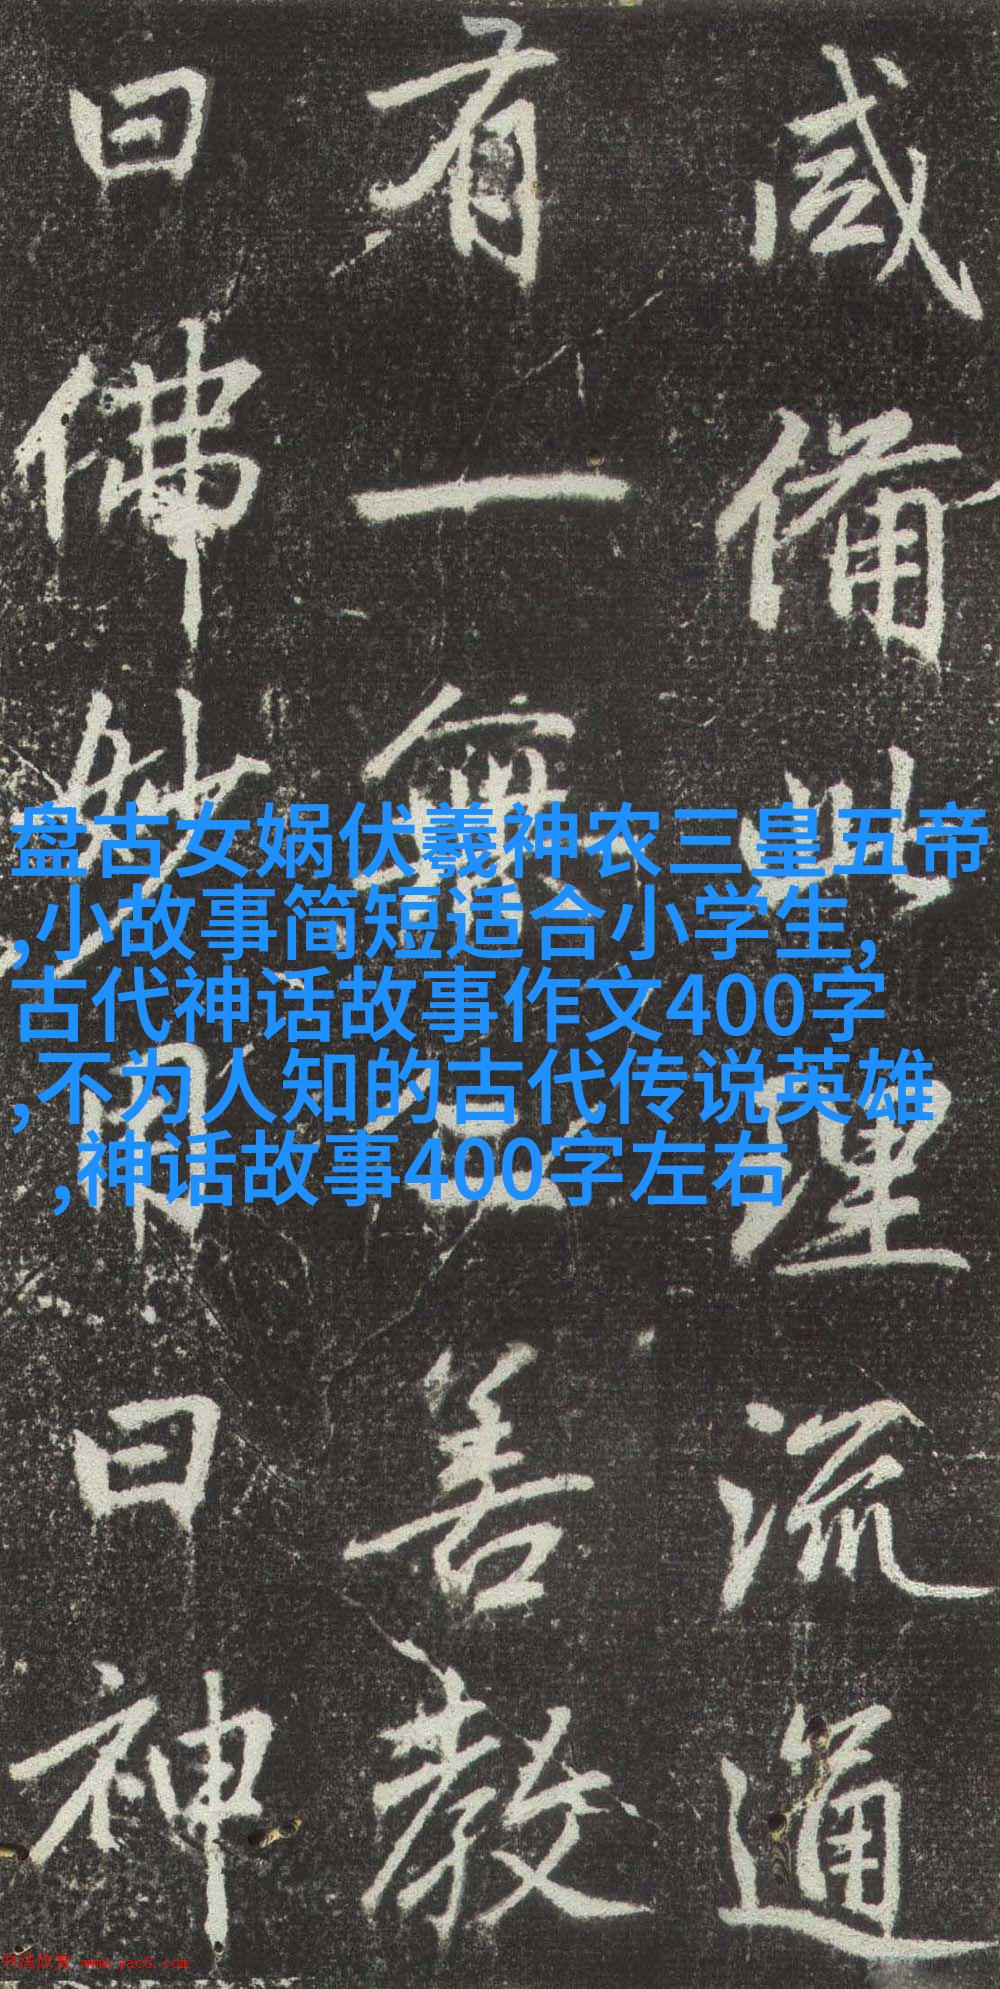 咸備此理流通
有一無二善教
曰佛妙用曰神
盘古女娲伏羲神农三皇五帝
,小故事简短适合小学生,
古代神话故事作文400字
,不为人知的古代传说英雄
,神话故事400字左右
书法欣赏 www.yac8.com